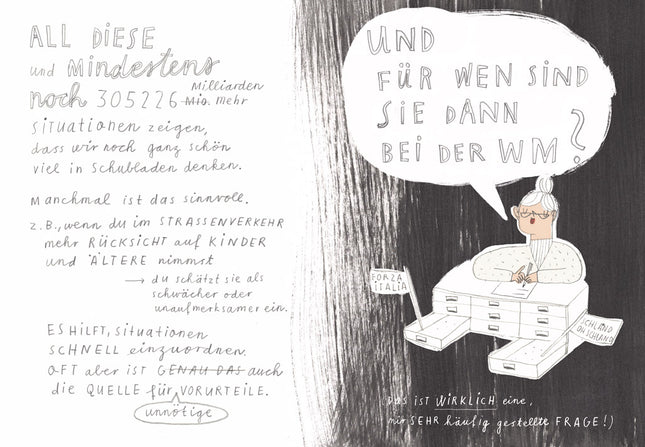 ALL DIESE
und Mindestens
Milliarden
noch 305226 Mio. mehr
SITUATIONEN zeigen,
dass wir noch ganz schön
viel in Schubladen denken.
Manchmal ist das sinnvoll.
z.B., wenn du im STRASSENVERKEHR
mehr RÜCKSICHT auf KINDER
und ÄLTERE nimmst
→ du schätzt sie als
schwächer oder
unaufmerksamer ein.
ES HILFT, Situationen
SCHNELL einzuordnen.
OFT aber ist GENAU DAS auch
die QUELLE für VORURTEILE.
unnötige
UND
FÜR WEN SIND
SIE DANN
BEI DER WM?
FORZA
ITALIA
SCHLAND
(Das ist WIRKLICH eine,
mir SEHR häufig gestellte FRAGE!)